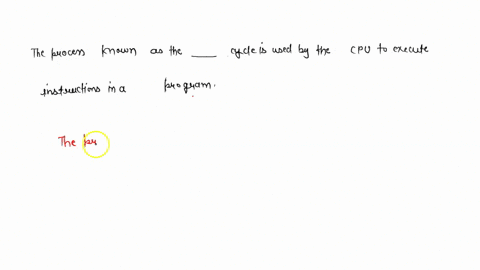 The process known as the ____ cycle is used by the CPU to execute
instructions in a program.
The pr